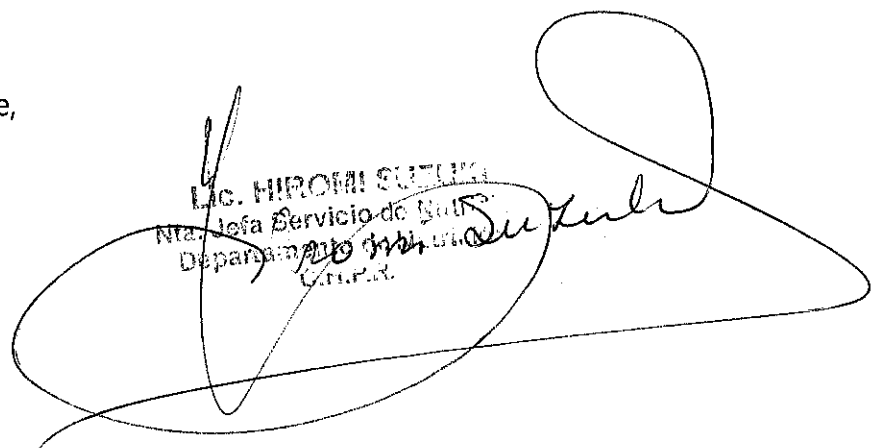 e,
Lic. HIROMI SUZUKI
Nta. Jefa Servicio de Nutri
Departamento
Hiromi Suzuki